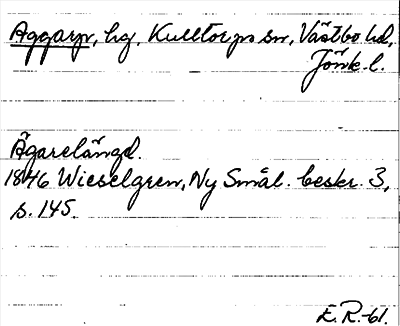 Aggarp, hg. Kulltorps sn, Västbo hd,
Jönk. l.
Ägarelängd.
1846 Wieselgren, Ny Smål. beskr. 3,
s. 145.
E. R. -61.